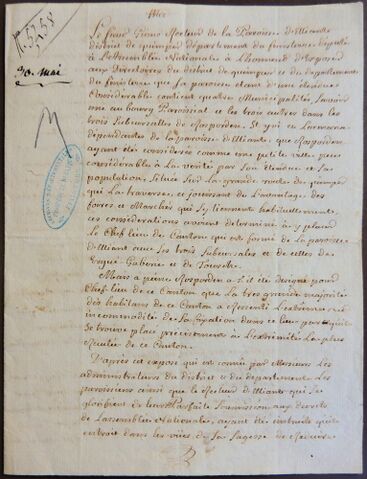 N. 5258
30. mai
Le Sieur Recteur de la Paroisse d'Elliant
district de quimper département du finistere
assemblée Nationale à L'honneur d'Exposer
aux Directoires du district de quimper et du departement
du finistere que sa paroisse dans d'une étendue
Considérable contient quatre Municipalités Savoir
une au bourg Paroissial et les trois autres dans les
trois Subcursalles de Rosporden, St yvi et Locmaria
dépendantes de la paroisse d'Elliant, que Rosporden
ayant été considerée comme une petite ville assez
considérable à La verité par son étendue et sa
population, Située Sur La grande route de quimper
qui La traverse, et jouissant de L'avantage des
foires et Marchés qui s'y tiennent habituellement,
ces considérations avoient determiné à y placer
Le Chef lieu de Canton qui est formé de La paroisse
d'Elliant avec les trois Subcursales et de celles de
Ergué Gaberic et de Tourch.
Mais a peine Rosporden a t il été designé pour
Chef-lieu de ce Canton que La tres grande majorité
des habitans de ce Canton a Ressenti L'extreme
incommodité de sa fixation dans ce lieu parce qu'il
Se trouve placé précisément à L'extremité La plus
Reculée de ce Canton.
D'apres cet exposé qui est connu par Messieurs Les
administrateurs du district et du departement, Les
paroissiens ainsi que le Recteur d'Elliant qui se
glorifient de Leur Parfaite Soummission aux decrets
de L'assemblée Nationale, ayant été instruits qu'il
entroit dans les vües de Sa Sagesse de Reduire